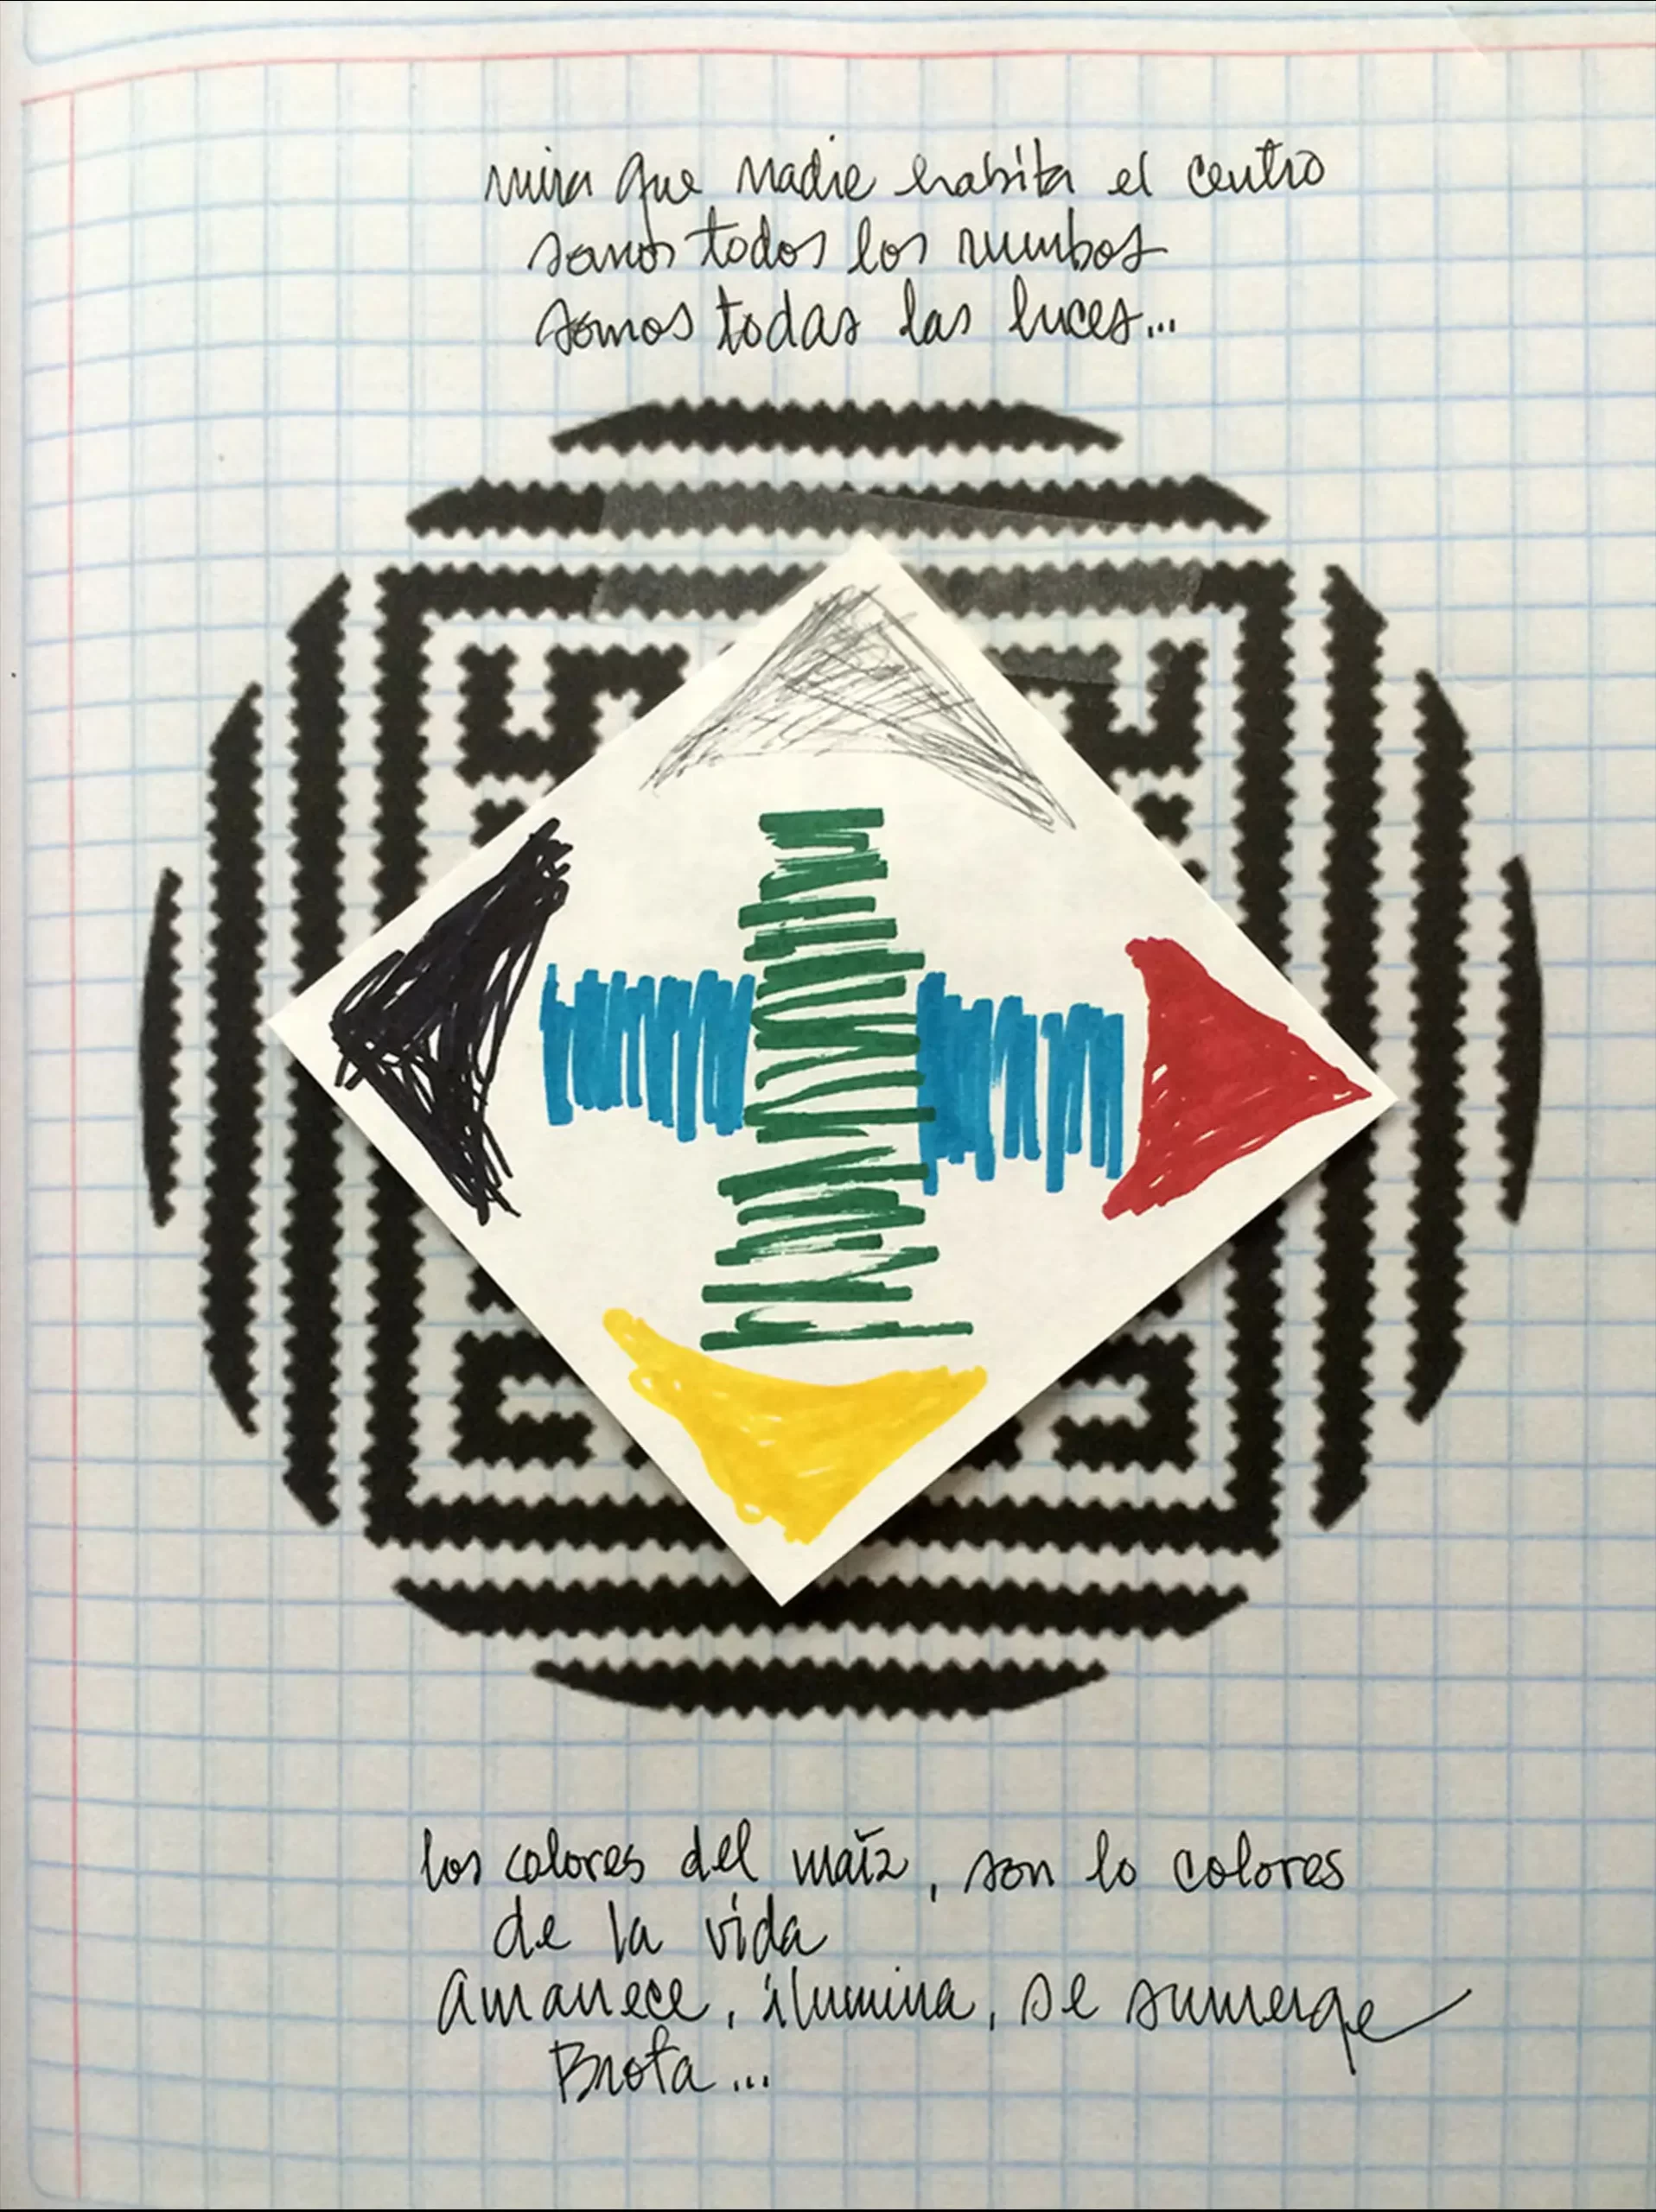 mira que nadie habita el centro
somos todos los rumbos
somos todas las luces...
los colores del maíz, son lo colores
de la vida
amanece, ilumina, se sumerge
Brota...